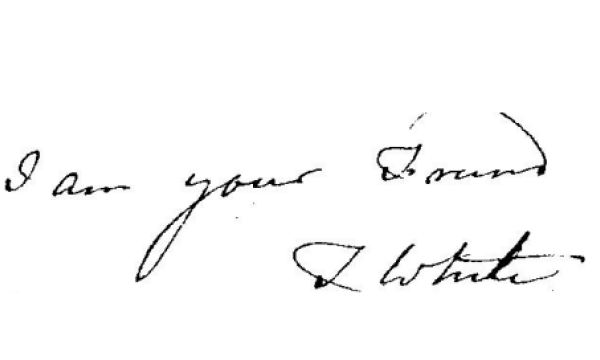 I am your Friend
T White